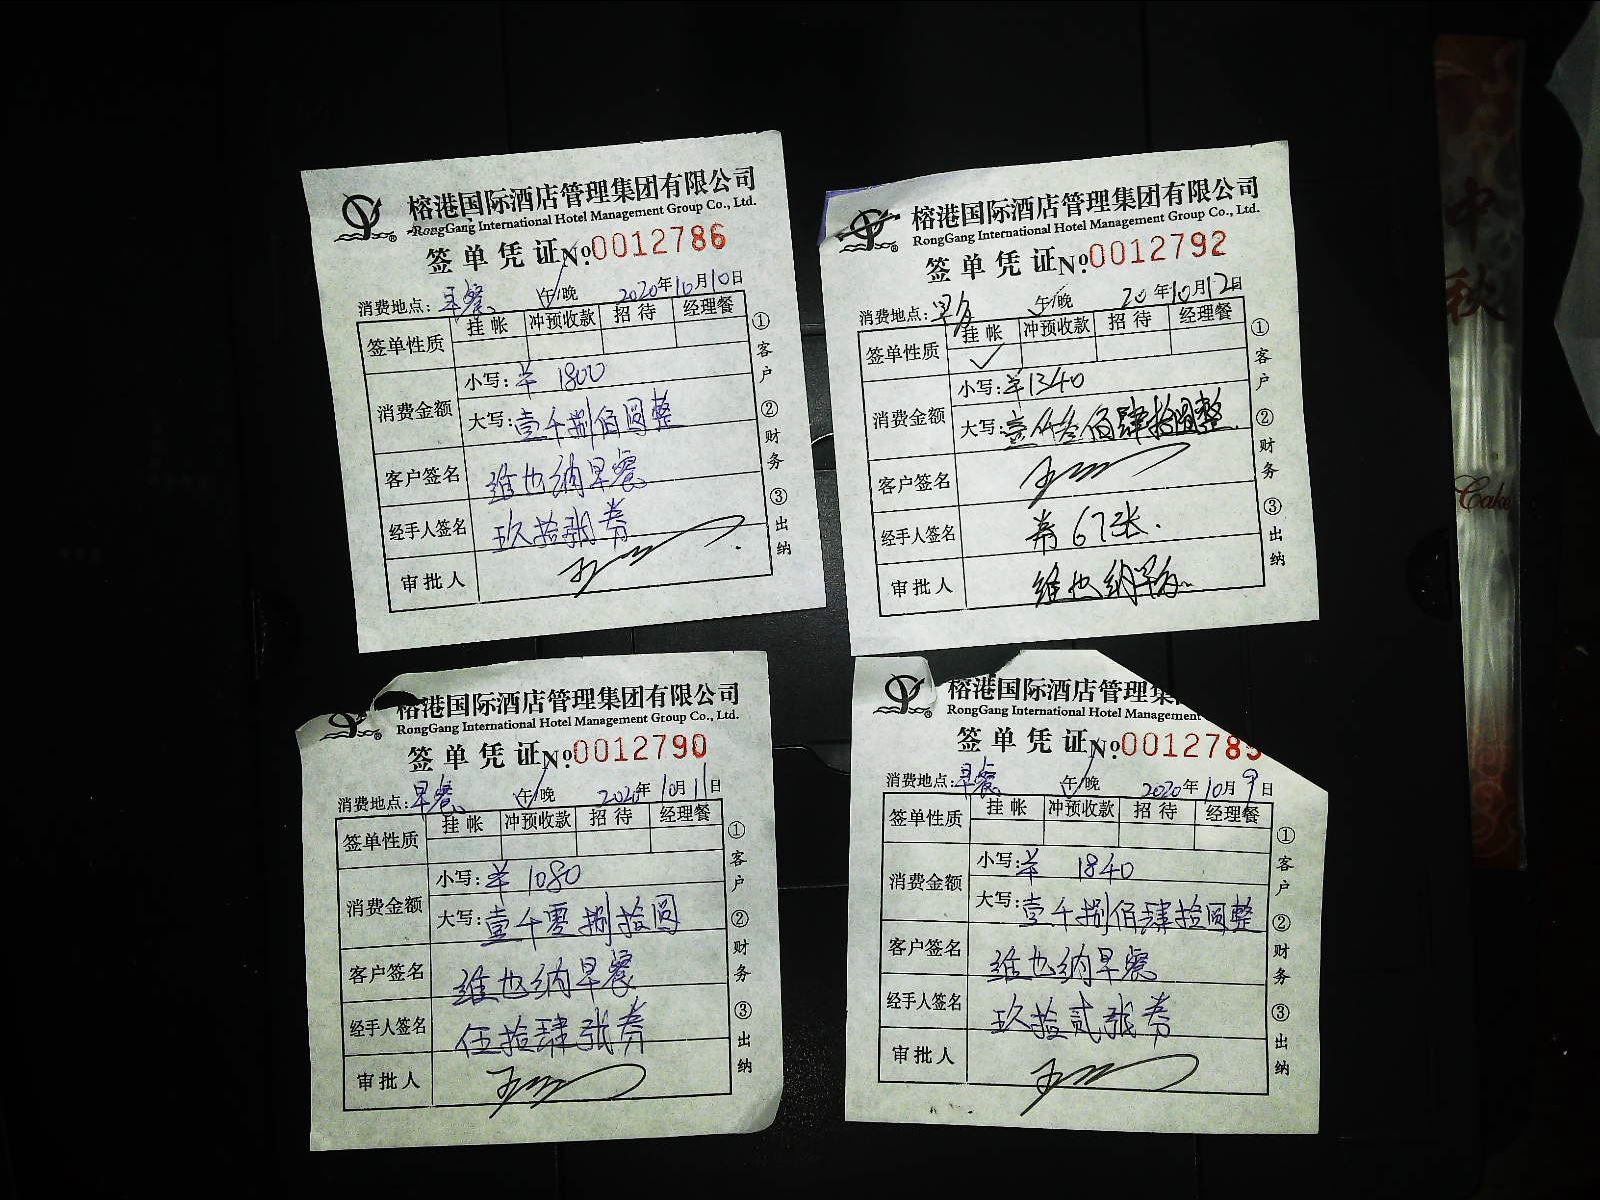 榕港国际酒店管理集团有限公司
RongGang International Hotel Management Group Co., Ltd.
签单凭证 No.0012786
消费地点：早餐 午/晚 2020年10月10日
签单性质 挂帐 冲预收款 招待 经理餐
消费金额 小写：¥ 1800
大写：壹千捌佰圆整
客户签名 维也纳早餐
经手人签名 玖拾张券
审批人
①客户 ②财务 ③出纳
榕港国际酒店管理集团有限公司
RongGang International Hotel Management Group Co., Ltd.
签单凭证 No.0012792
消费地点：早 午/晚 20年10月12日
签单性质 挂帐 冲预收款 招待 经理餐
✓
消费金额 小写：¥1340
大写：壹仟叁佰肆拾圆整
客户签名
经手人签名 券67张.
审批人 维也纳早
①客户 ②财务 ③出纳
榕港国际酒店管理集团有限公司
RongGang International Hotel Management Group Co., Ltd.
签单凭证 No.0012790
消费地点：早餐 午/晚 2020年10月11日
签单性质 挂帐 冲预收款 招待 经理餐
消费金额 小写：¥ 1080
大写：壹千零捌拾圆
客户签名 维也纳早餐
经手人签名 伍拾肆张券
审批人
①客户 ②财务 ③出纳
榕港国际酒店管理集
RongGang International Hotel Management
签单凭证 No.001278
消费地点：早餐 午/晚 2020年10月9日
签单性质 挂帐 冲预收款 招待 经理餐
消费金额 小写：¥ 1840
大写：壹千捌佰肆拾圆整
客户签名 维也纳早餐
经手人签名 玖拾贰张券
审批人
①客户 ②财务 ③出纳
中秋
Cake